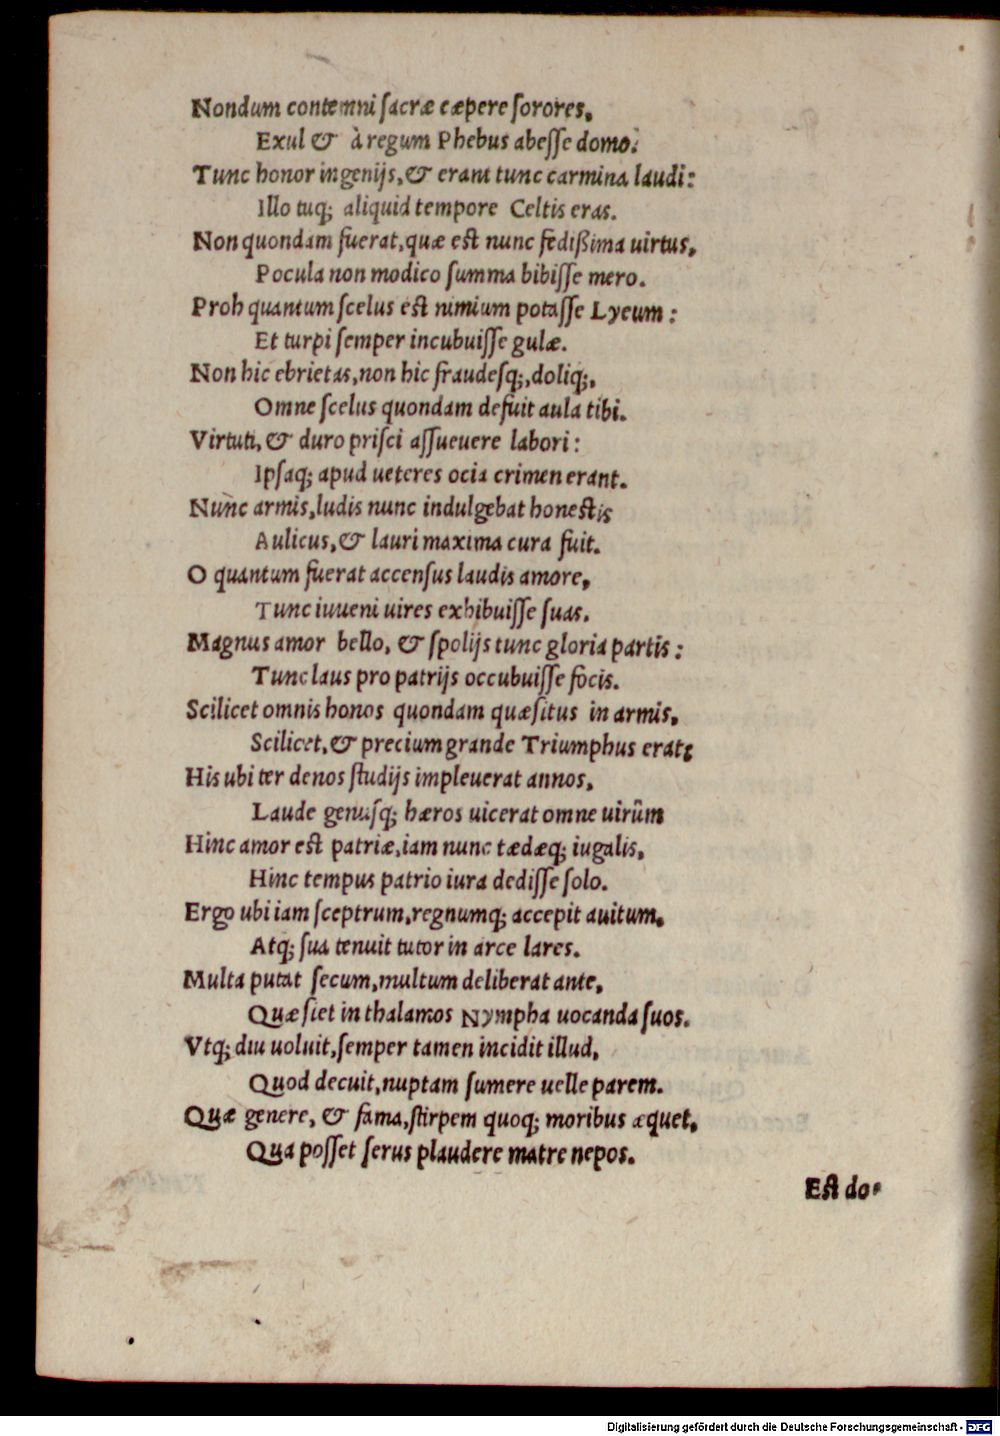 Nondum contemni ſacræ cæpere ſorores,
Exul & à regum Phebus abeſſe domo.
Tunc honor ingenijs, & erant tunc carmina laudi:
Illo tuq; aliquid tempore Celtis eras.
Non quondam fuerat, quæ est nunc fedißima uirtus,
Pocula non modico ſumma bibiſſe mero.
Proh quantum ſcelus est nimium potaſſe Lyeum:
Et turpi ſemper incubuiſſe gulæ.
Non hic ebrietas, non hic fraudeſq;, doliq;,
Omne ſcelus quondam defuit aula tibi.
Virtuti, & duro priſci aſſueuere labori:
Ipſaq; apud ueteres ocia crimen erant.
Nunc armis, ludis nunc indulgebat honestis
Aulicus, & lauri maxima cura fuit.
O quantum fuerat accenſus laudis amore,
Tunc iuueni uires exhibuiſſe ſuas.
Magnus amor bello, & ſpolijs tunc gloria partis:
Tunc laus pro patrijs occubuiſſe focis.
Scilicet omnis honos quondam quæſitus in armis,
Scilicet, & precium grande Triumphus erat;
His ubi ter denos ſtudijs impleuerat annos,
Laude genuſq; hæros uicerat omne uirûm
Hinc amor est patriæ, iam nunc tædæq; iugalis,
Hinc tempus patrio iura dediſſe ſolo.
Ergo ubi iam ſceptrum, regnumq; accepit auitum,
Atq; ſua tenuit tutor in arce lares.
Multa putat ſecum, multum deliberat ante,
Quæ ſiet in thalamos Nympha uocanda ſuos.
Vtq; diu uoluit, ſemper tamen incidit illud,
Quod decuit, nuptam ſumere uelle parem.
Quæ genere, & fama, ſtirpem quoq; moribus æquet,
Qua poſſet ſerus plaudere matre nepos.
Est do-
Digitalisierung gefördert durch die Deutsche Forschungsgemeinschaft - DFG